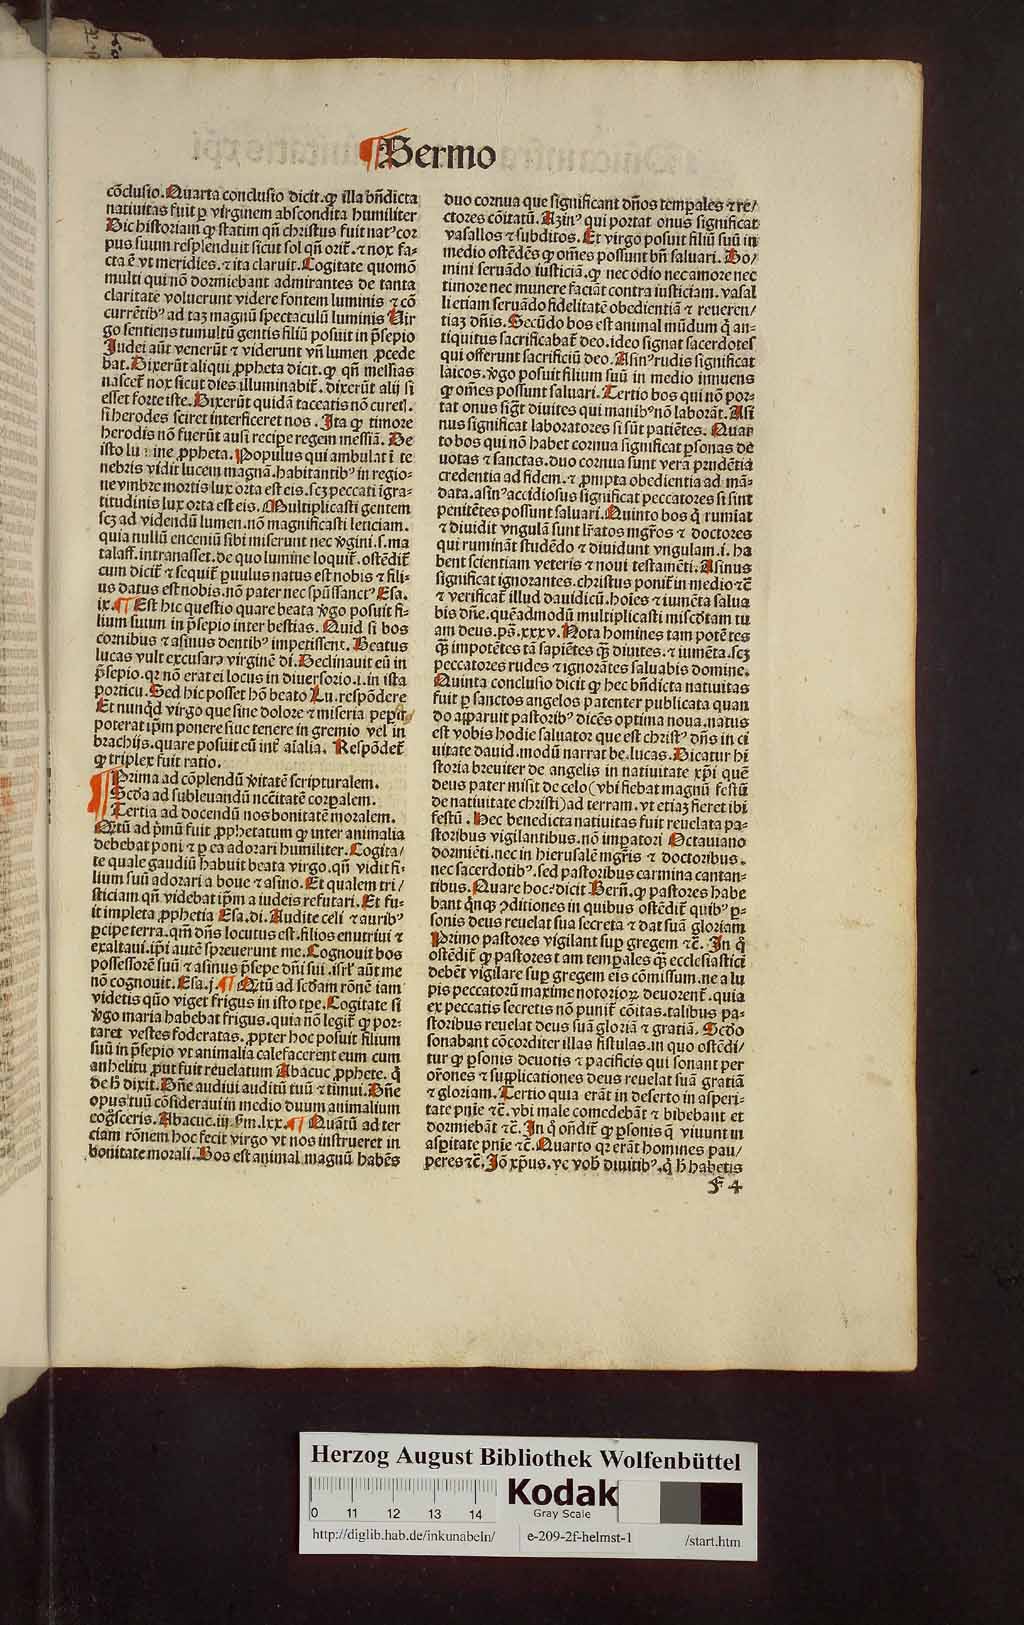 ¶Sermo
cōclusio. Quarta conclusio dicit. ꝙ illa bñdicta
natiuitas fuit ꝑ virginem abscondita humiliter
Dic historiam ꝙ statim qñ christus fuit natꝰ cor
pus suum resplenduit sicut sol qñ orit̃. ⁊ nox fa-
cta ē vt meridies. ⁊ ita claruit. Cogitate quomō
multi qui nō dormiebant admirantes de tanta
claritate voluerunt videre fontem luminis ⁊ cō
currētibꝰ ad taꝫ magnū spectaculū luminis Uir
go sentiens tumultū gentis filiū posuit in p̄sepio
Judei aūt venerūt ⁊ viderunt vñ lumen ꝓcede
bat. Dixerūt aliqui ꝓpheta dicit. ꝙ qñ messias
nascet̃ nox sicut dies illuminabit̃. dixerūt alij si
esset forte iste. Dixerūt quidā taceatis nō curetꝭ.
si herodes sciret interficeret nos. Ita ꝙ timore
herodis nō fuerūt ausi recipe regem messiā. De
isto lumine ꝓpheta. Populus qui ambulat ī te
nebris vidit lucem magnā. habitantibꝰ in regio-
ne vmbre mortis lux orta est eis. scꝫ peccati īgra-
titudinis lux orta est eis. Multiplicasti gentem
scꝫ ad videndū lumen. nō magnificasti leticiam.
quia nullū enceniū sibi miserunt nec ꝟgini. s. ma
talass. intranasset. de quo lumine loquit̃. ostēdit̃
cum dicit̃ ⁊ sequit̃ ꝑuulus natus est nobis ⁊ fili-
us datus est nobis. nō pater nec spūssanctꝰ Esa.
ix. ¶ Est hic questio quare beata ꝟgo posuit fi-
lium suum in p̄sepio inter bestias. Quid si bos
cornibus ⁊ asinus dentibꝰ impetissent. Beatus
lucas vult excusare virginē dī. Declinauit eū in
p̄sepio. qꝛ nō erat ei locus in diuersorio. i. in ista
porticu. Sed hic posset hō beato Lu. respōdere
Et nunqd virgo que sine dolore ⁊ miseria peꝑit
poterat ip̄m ponere siue tenere in gremio vel in
brachijs. quare posuit eū int̃ aīalia. Respōdet̃
ꝙ triplex fuit ratio.
¶ Prima ad cōplendū ꝟitatē scripturalem.
Scd̄a ad subleuandū nccītatē corꝑalem.
Tertia ad docendū nos bonitatē moralem.
Qꝫtū ad p̄mū fuit ꝓphetatum ꝙ inter animalia
debebat poni ⁊ ꝑ ea adorari humiliter. Cogita/
te quale gaudiū habuit beata virgo. qñ vidit fi-
lium suū adorari a boue ⁊ asino. Et qualem tri/
sticiam qñ videbat ip̄m a iudeis refutari. Et fu-
it impleta ꝓphetia Esa. dī. Audite celi ⁊ auribꝰ
ꝑcipe terra. qm̄ dñs locutus est. filios enutriui ⁊
exaltaui. ip̄i autē spreuerunt me. Cognouit bos
possessorē suū ⁊ asinus p̄sepe dñi sui. isrl̄ aūt me
nō cognouit. Esa. j. ¶ Qꝫtū ad scd̄am rōnē iam
videtis quō viget frigus in isto tꝑe. Cogitate si
ꝟgo maria habebat frigus. quia nō legit̃ ꝙ por-
taret vestes foderatas. ꝓpter hoc posuit filium
suū in p̄sepio vt animalia calefacerent eum cum
anhelitu ꝓut fuit reuelatum Abacuc ꝓphete. q̇
de h̄ dixit. Dñe audiui auditū tuū ⁊ timui. Dñe
opus tuū cōsideraui in medio duum animalium
cogsceris. Abacuc. iij. ẜm. lxx. ¶ Quātū ad ter
ciam rōnem hoc fecit virgo vt nos instrueret in
bonitate morali. Bos est animal magnū habēs
duo cornua que significant dños tempales ⁊ re/
ctores cōitatū. Azinꝰ qui portat onus significat
vasallos ⁊ subditos. Et virgo posuit filiū suū in
medio ostēdēs ꝙ om̄es possunt bñ saluari. Do/
mini seruādo iusticiā. ꝙ nec odio nec amore nec
timore nec munere faciāt contra iusticiam. vasal
li etiam seruādo fidelitatē obedientiā ⁊ reueren/
tiaꝫ dñis. Secūdo bos est animal mūdum q̇ an-
tiquitus sacrificabat̃ deo. ideo signat sacerdotes
qui offerunt sacrificiū deo. Asinꝰ rudis significat
laicos. ꝟgo posuit filium suū in medio innuens
ꝙ om̄es possunt saluari. Tertio bos qui nō por-
tat onus sigt̃ diuites qui manibꝰ nō laborāt. Asi
nus significat laboratores si sūt patiētes. Quar
to bos qui nō habet cornua significat ꝑsonas de
uotas ⁊ sanctas. duo cornua sunt vera prudētia
credentia ad fidem. ⁊ ꝓmpta obedientia ad mā-
data. asinꝰ accidiosus significat peccatores si sint
penitētes possunt saluari. Quinto bos q̇ rumiat
⁊ diuidit vngulā sunt lr̄atos mgr̄os ⁊ doctores
qui rumināt studēdo ⁊ diuidunt vngulam. i. ha
bent scientiam veteris ⁊ noui testamēti. Asinus
significat ignorantes. christus ponit̃ in medio ⁊c̄
⁊ verificat̃ illud dauidicū. hoīes ⁊ iumēta salua
bis dñe. quēadmodū multiplicasti miscd̄tam tu
am deus. ps̄. xxxv. Nota homines tam potētes
qꝫ̄ impotētes tā sapiētes qꝫ̄ diuites. ⁊ iumēta. scꝫ
peccatores rudes ⁊ ignorātes saluabis domine.
Quinta conclusio dicit ꝙ hec bñdicta natiuitas
fuit ꝑ sanctos angelos patenter publicata quan
do aꝑaruit pastoribꝰ dicēs optima noua. natus
est vobis hodie saluator que est christꝰ dñs in ci
uitate dauid. modū narrat be. lucas. Dicatur hi
storia breuiter de angelis in natiuitate xp̄i quē
deus pater misit de celo (vbi fiebat magnū festū
de natiuitate christi) ad terram. vt etiaꝫ fieret ibi
festū. Hec benedicta natiuitas fuit reuelata pa-
storibus vigilantibus. nō imꝑatori Octauiano
dormiēti. nec in hierusalē mgr̄is ⁊ doctoribus.
nec sacerdotibꝰ. sed pastoribus carmina cantan-
tibus. Quare hoc: dicit Berñ. ꝙ pastores habe
bant qnqꝫ ꝯditiones in quibus ostēdit̃ quibꝰ ꝑ-
sonis deus reuelat sua secreta ⁊ dat suā gloriam
Primo pastores vigilant suꝑ gregem ⁊c̄. In q̇
ostēdit̃ ꝙ pastores tam tempales qꝫ̄ ecclesiastici
debēt vigilare suꝑ gregem eis cōmissum. ne a lu
pis peccatorū maxime notorioꝝ deuorent̃. quia
ex peccatis secretis nō punit̃ cōitas. talibus pa-
storibus reuelat deus suā gloriā ⁊ gratiā. Scd̄o
sonabant cōcorditer illas fistulas. in quo ostēdi/
tur ꝙ ꝑsonis deuotis ⁊ pacificis qui sonant per
or̄ones ⁊ supplicationes deus reuelat suā gratiā
⁊ gloriam. Tertio quia erāt in deserto in asperi-
tate pn̄ie ⁊c̄. vbi male comedebāt ⁊ bibebant et
dormiebāt ⁊c̄. In q̇ oñdit̃ ꝙ ꝑsonis q̄ viuunt in
asꝑitate pn̄ie ⁊c̄. Quarto qꝛ erāt homines pau/
peres ⁊c̄. Jō xp̄us. ve vob̄ diuitibꝰ. q̇ h̄ habetis
4
Herzog August Bibliothek Wolfenbüttel
Kodak
Gray Scale
0 11 12 13 14
http://diglib.hab.de/inkunabeln/ e-209-2f-helmst-1 /start.htm